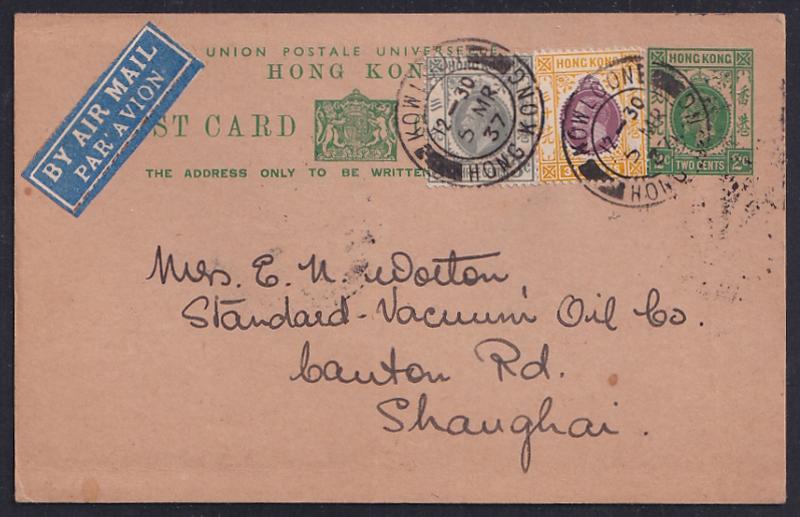 BY AIR MAIL
PAR AVION
UNION POSTALE UNIVERSE
HONG KON
ST CARD
THE ADDRESS ONLY TO BE WRITTEN
HONG KONG
HONG KONG
香港
TWO CENTS
KOWLOON
12-30
5 MR
37
HONG KONG
KOWLOON
12-30
5 MR
HONG KONG
Mrs. E. N. Worton,
Standard-Vacuum Oil Co.
Canton Rd.
Shanghai.